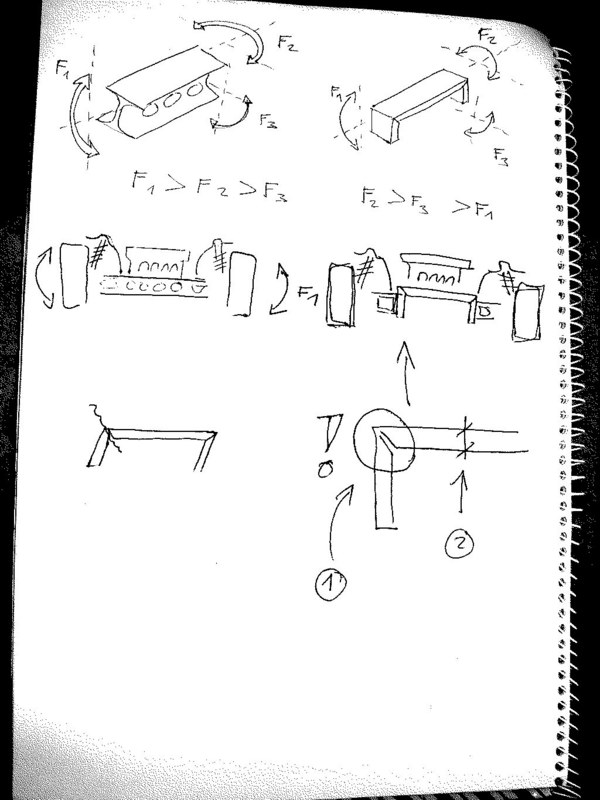 F2
F1
F3
F2
F1
F3
F1 > F2 > F3
F2 > F3 > F1
F1
!
1
2